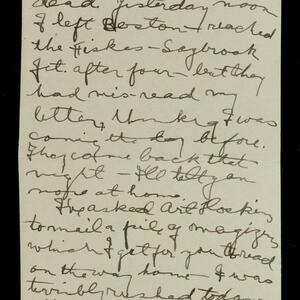 dead yesterday noon
I left Boston - reached
the Fiskes - Saybrook
Jct. after four - but they
had mis-read my
letter, thinking I was
coming the day before.
They came back that
night - I'll tell you
more at home.
I've asked Art Hoskins
to mail a pile of magazines
which I got for you to read
on the way home - I was
terribly rushed today